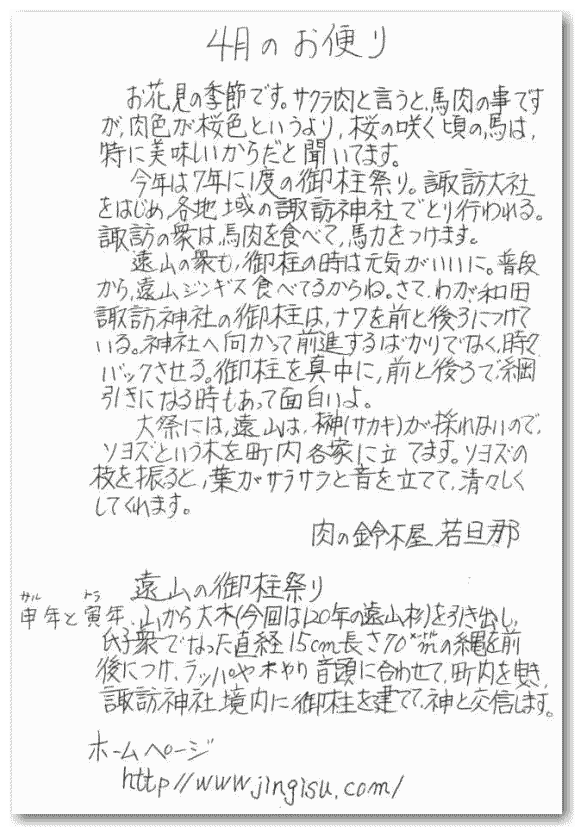 4月のお便り
お花見の季節です。サクラ肉と言うと、馬肉の事です
が、肉色が桜色というより、桜の咲く頃の馬は、
特に美味しいからだと聞いてます。
今年は7年に1度の御柱祭り。諏訪大社
をはじめ、各地域の諏訪神社でとり行われる。
諏訪の衆は、馬肉を食べて、馬力をつけます。
遠山の衆も、御柱の時は元気がいいに。普段
から、遠山ジンギス食べてるからね。さて、わが和田
諏訪神社の御柱は、ナワを前と後ろにつけて
いる。神社へ向かって前進するばかりでなく、時々
バックさせる。御柱を真中に、前と後ろで、綱
引きになる時もあって面白いよ。
大祭には、遠山は、榊(サカキ)が採れないので、
ソヨズという木を町内各家に立てます。ソヨズの
枝を振ると、葉がサラサラと音を立てて、清々しく
してくれます。
肉の鈴木屋 若旦那
遠山の御柱祭り
サル トラ
申年と寅年、山から大木(今回は120年の遠山杉)を引き出し、
氏子衆でなった直経15cm長さ70mメートルの縄を前
後につけ、ラッパや木やり音頭に合わせて、町内を曳き、
諏訪神社境内に御柱を建てて、神と交信します。
ホームページ
http//www.jingisu.com/